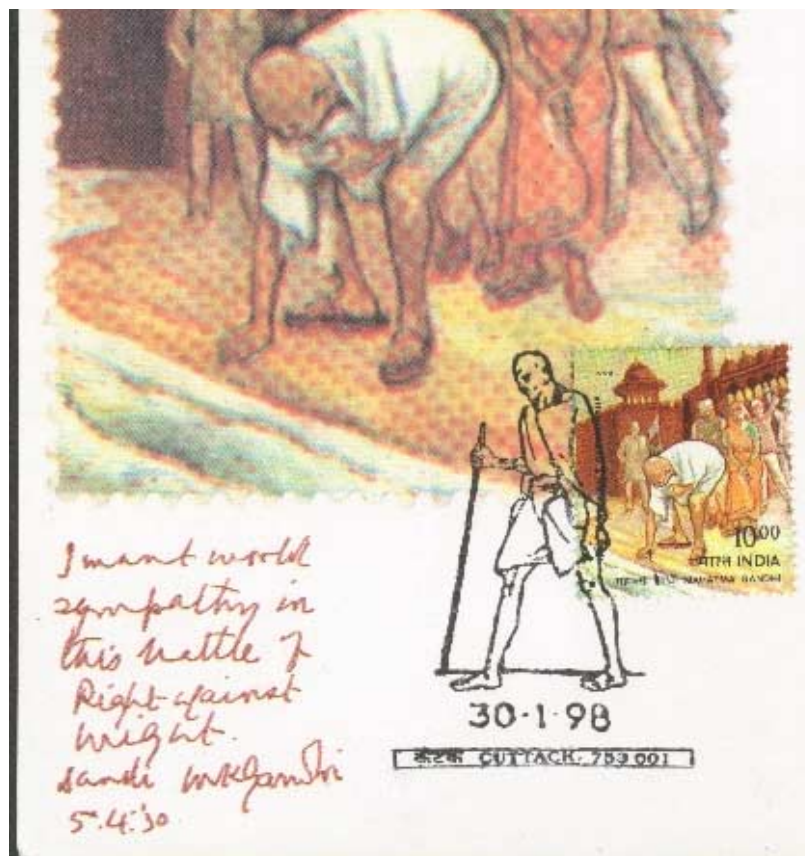 10.00
भारत INDIA
MAHATMA GANDHI
I want world
sympathy in
this battle of
Right against
might.
Dandi MKGandhi
5.4.'30
30·1·98
कटक CUTTACK-753 001